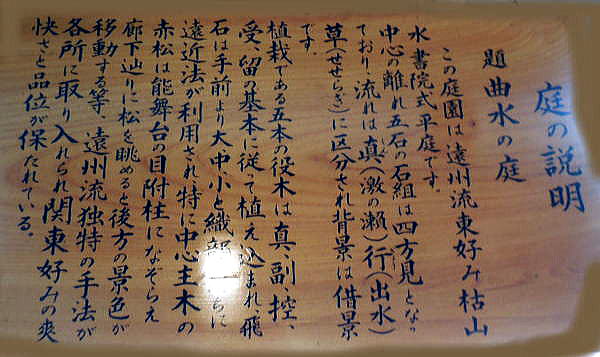 庭の説明
題 曲水の庭
この庭園は遠州流東好み枯山
水書院式平庭です。
中心の離れ五石の石組は四方見となっ
ており、流れは真(激の瀬)行(出水)
草(せせらぎ)に区分され背景は借景
です。
植栽である五本の役木は真、副、控、
受、留の基本に従って植え込まれ、飛
石は手前より大中小と織部ちに
遠近法が利用され、特に中心主木の
赤松は能舞台の目附柱になぞらえ
廊下辿りに松を眺めると後方の景色が
移動する等、遠州流独特の手法が
各所に取り入れられ関東好みの爽
快さと品位が保たれている。